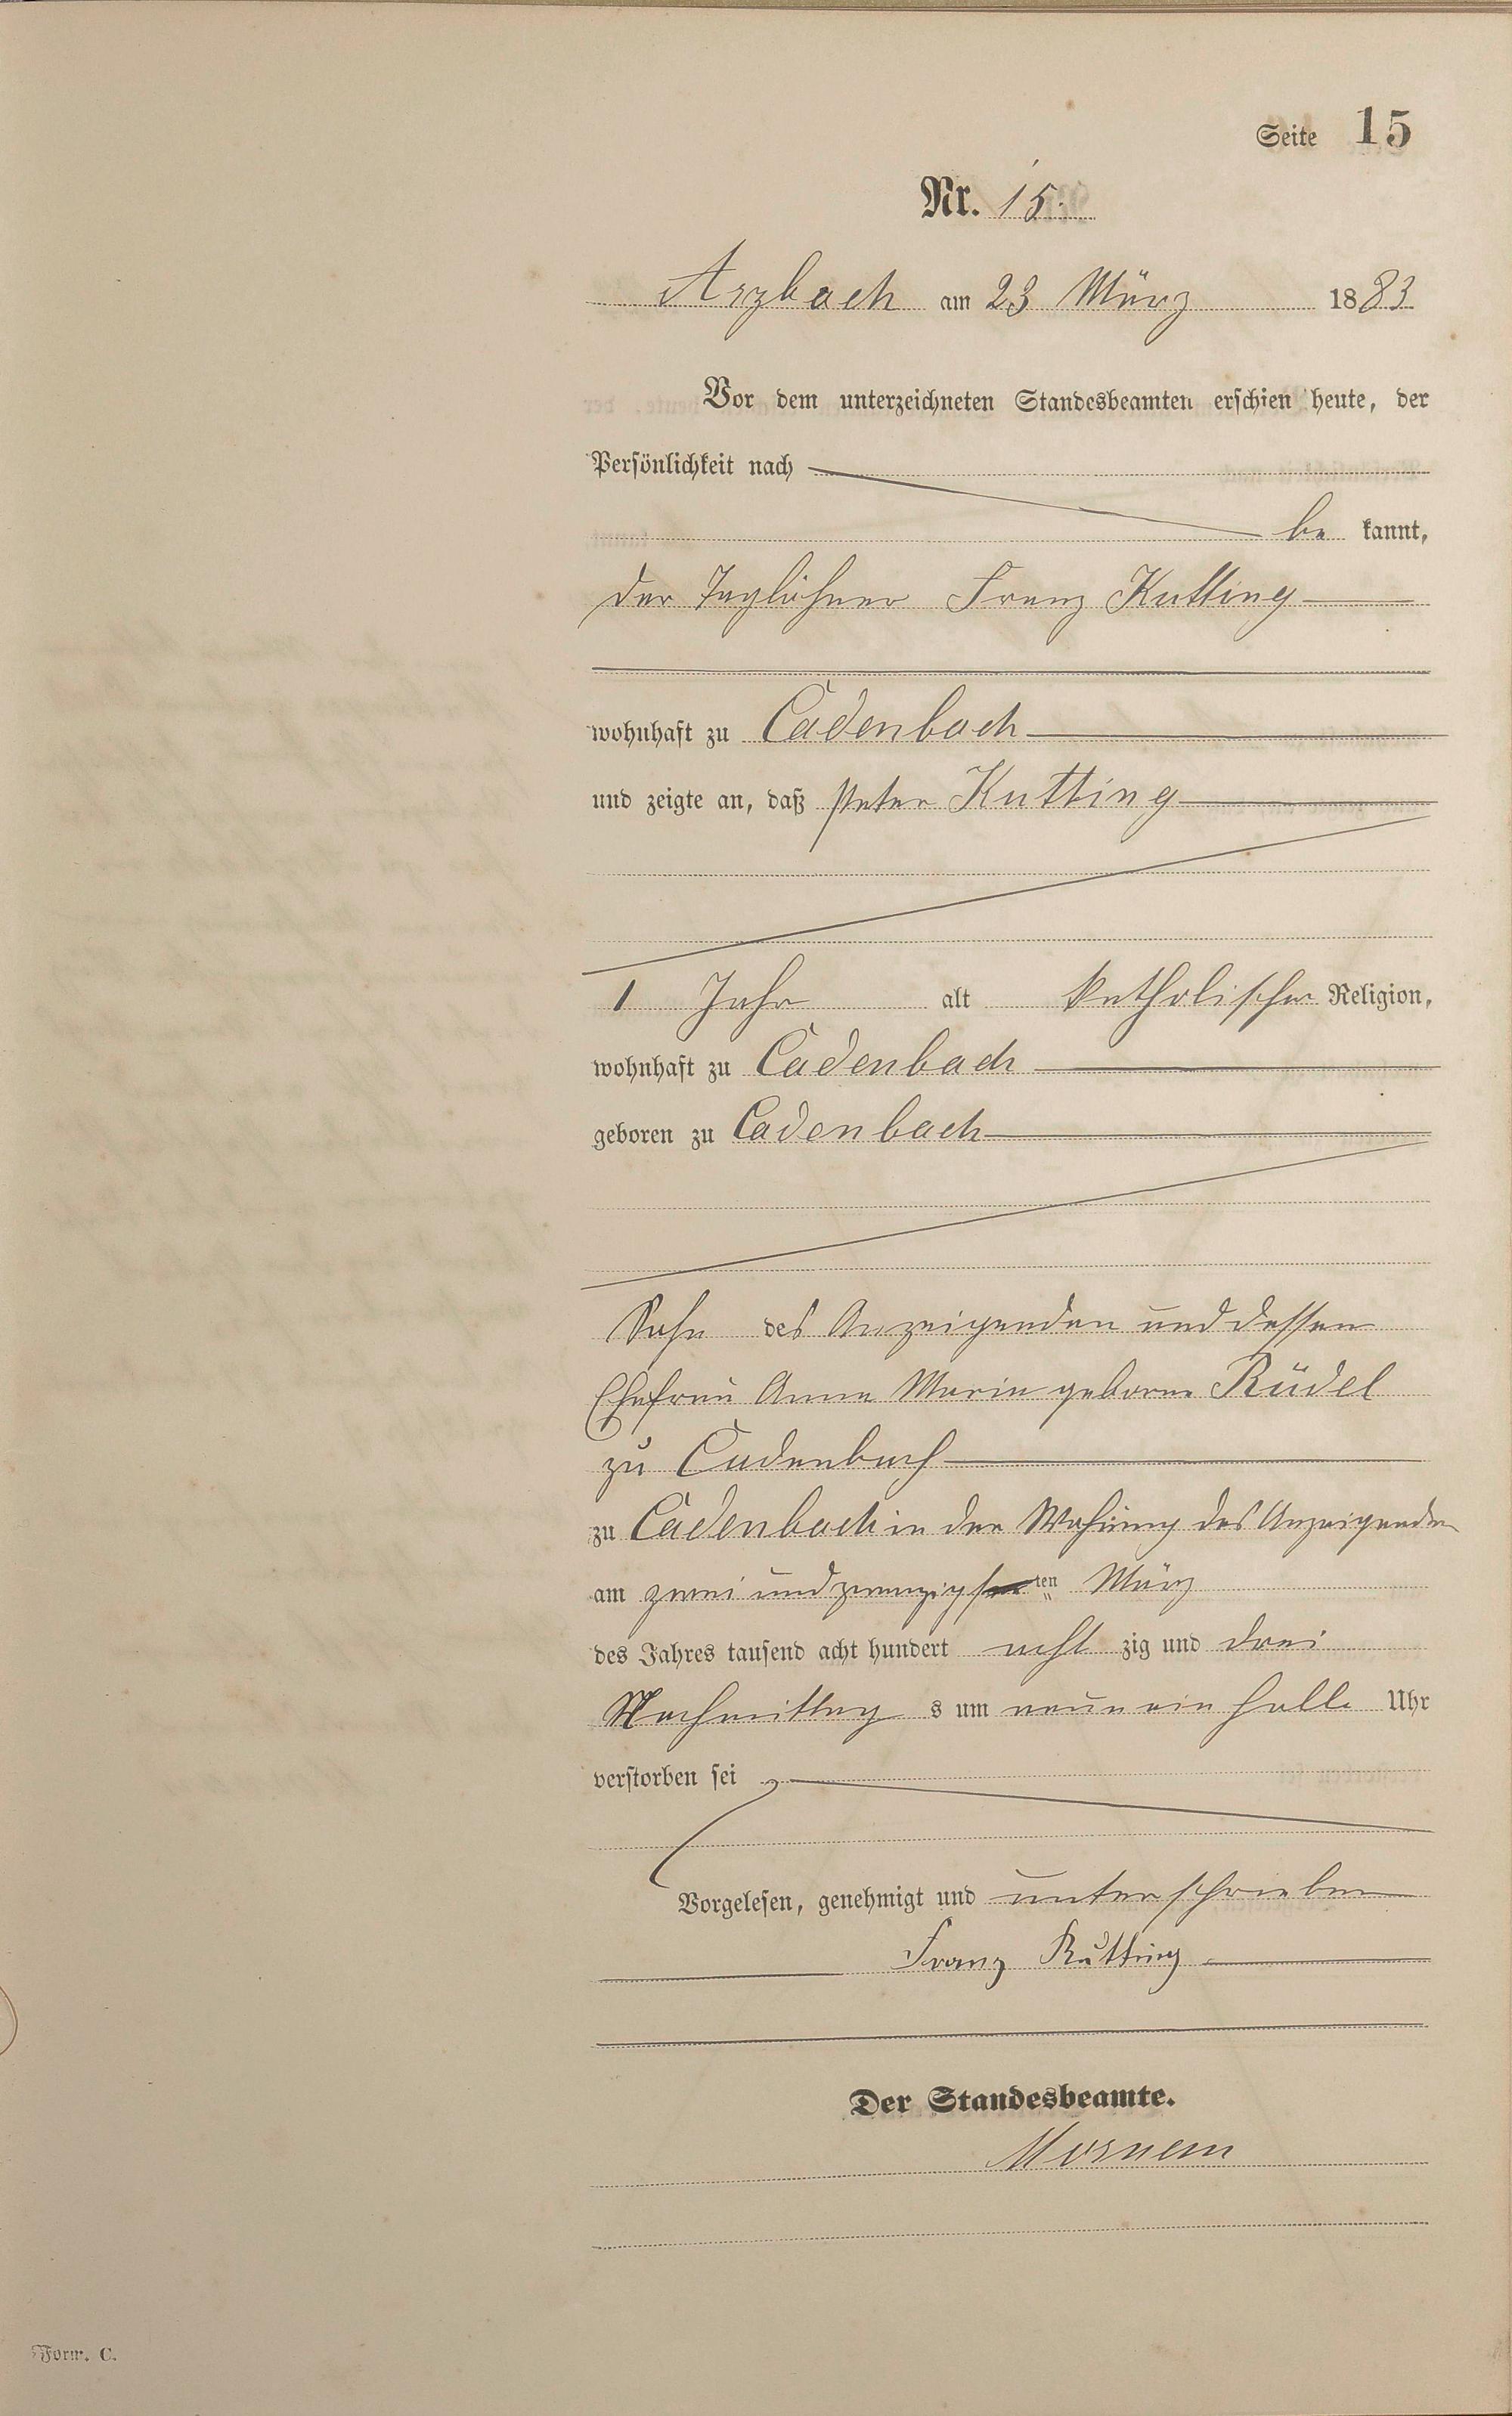 Seite 15
Nr. 15.
Arzbach am 23 März 1883
Vor dem unterzeichneten Standesbeamten erschien heute, der
Persönlichkeit nach
be kannt,
der Taglöhner Franz Kutting
wohnhaft zu Cadenbach
und zeigte an, daß Peter Kutting
1 Jahr alt katholischer Religion,
wohnhaft zu Cadenbach
geboren zu Cadenbach
Sohn des Anzeigenden und dessen
Ehefrau Anna Maria geborne Rüdel
zu Cadenbach
zu Cadenbach in der Wohnung des Anzeigenden
am zwei und zwanzigsten März
des Jahres tausend acht hundert acht zig und drei
Nachmittag s um neun ein halb Uhr
verstorben sei
Vorgelesen, genehmigt und unterschrieben
Franz Kutting
Der Standesbeamte.
Form. C.